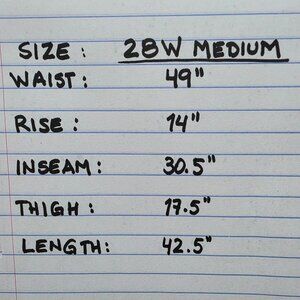 SIZE: 28W MEDIUM
WAIST: 49"
RISE: 14"
INSEAM: 30.5"
THIGH: 17.5"
LENGTH: 42.5"